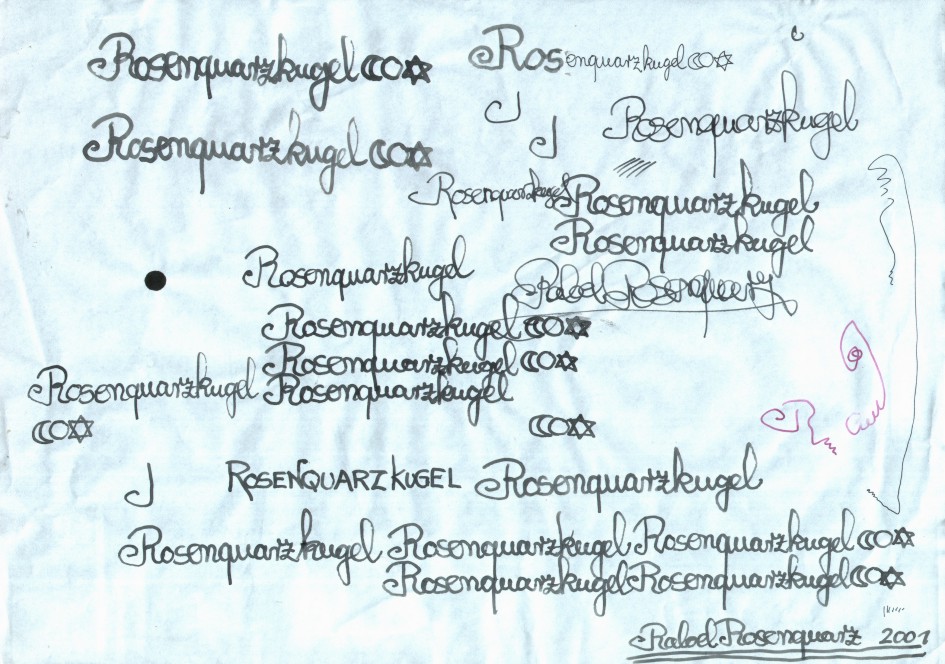 Rosenquarzkugel
Rosenquarzkugel
Rosenquarzkugel
Rosenquarzkugel
Rosenquarzkugel Rosenquarzkugel
Rosenquarzkugel
Rosenquarzkugel
Rosenquarzkugel
Rosenquarzkugel
Rosenquarzkugel Rosenquarzkugel
ROSENQUARZKUGEL Rosenquarzkugel
Rosenquarzkugel Rosenquarzkugel Rosenquarzkugel
Rosenquarzkugel Rosenquarzkugel
Rosenquarz 2001